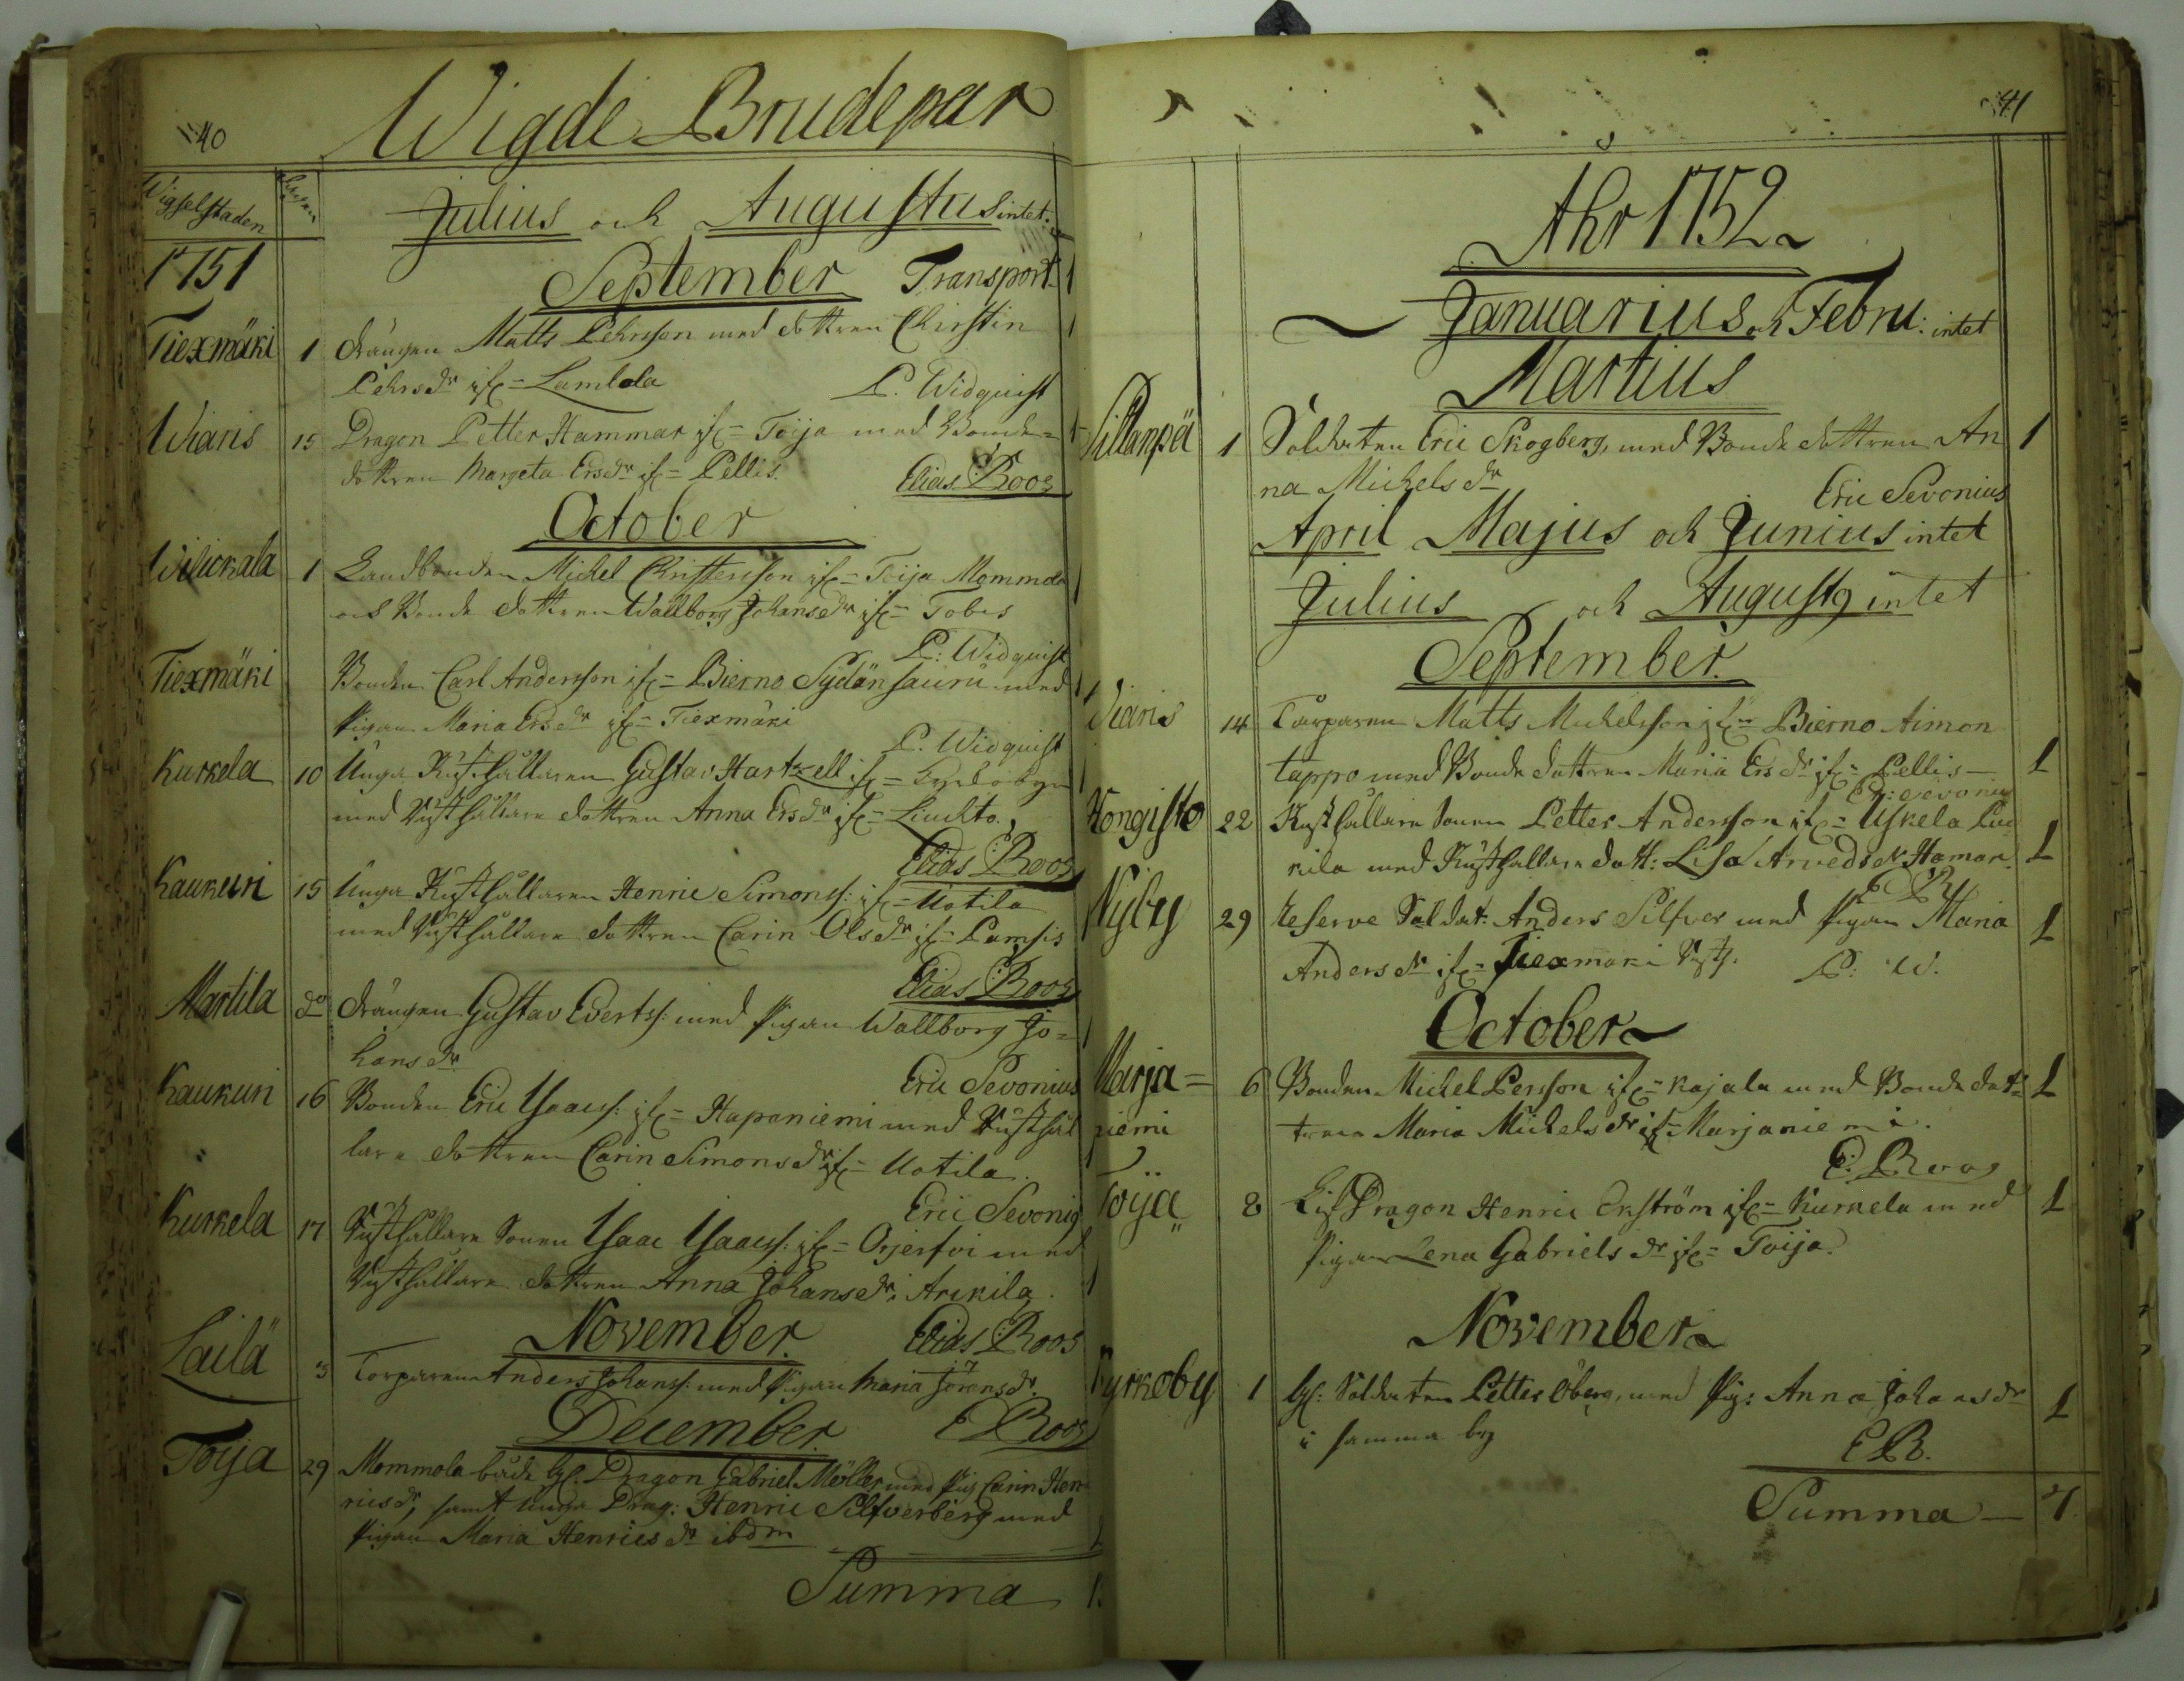 40
Wigde Brudepar
Wigselstaden
1751
Julius och Augustus intet.
September Transport 1
Tiexmäki 1 drängen Matts Pehrsson med dottren Chirstin
Pehrsdr ifr= Lambola P. Widquist
Wiaris 15 Dragon Petter Hammar ifr= Toija med Bonde=
dottren Margeta Ersdr ifr= Pellis. Elias Roos
October
1 Landbonden Michel Christersson ifr= Toija Mommola
och Bonde dottren Wallborg Johansdr ifr= Tobis
P: Widquist
Tiexmäki Bonden Carl Andersson ifr= Bierno Sydänsauru med
Pigan Maria Ersdr ifr= Tiexmäki
P. Widquist
Kurkela 10 Unga Rusthållaren Gustav Hartzell ifr=
med Rusthållare dottren Anna Ersdr ifr=
Elias Roos
Kaukuri 15 Unga Rusthållaren Henric Simonss: ifr= Uotila
med Rusthållare dottren Carin Olsdr ifr= Pamsis
Elias Roos
Martila do drängen Gustav Evertss: med Pigan Wallborg Jo=
hansdr Eric Sevonius
Kaukuri 16 Bonden Eric Isaacss: ifr= Haponiemi med Rusthål
lare dottren Carin Simonsdr ifr= Uotila.
Eric Sevonig
Kurkela 17 Rusthållare Sonen Isaac Isaacss: ifr= Orjersoi med
Rusthållare dottren Anna Johansdr i Arkila.
November. Elias Roos
Lailä 3 Torparen Anders Johanss: med Pigan Maria Jöransdr.
December E Roos
Toija 29 Mommola både Dragon Gabriel Möller med Pig Carin Hen
ricsdr, samt unga Drag: Henric Silfverberg med
Pigan Maria Henricsdr ibdm
Summa
41
Ahr 1752
Januarius och Febru: intet
Martius
Sillanpä 1 Soldaten Eric Skogberg, med Bonde dottren An 1
na Michelsdr
Eric Sevonius
April Majus och Junius intet
Julius och August9 intet
September.
Wiaris 14 Torparen Matts Michelsson ifr= Bierno Aimon
tappo med Bonde dottren Maria Ersdr ifr= Pellis 1
Er: Sevonig
Kongisto 22 Rusthållare Sonen Petter Andersson ifr= Uskela
kila med Rusthållare dott: Lisa Arvedsdr Haman. 1
Nyby 29 Reserve Soldat: Anders Silfver med Pigan Maria 1
Andersdr ifr= Tiexmäki P: W.
October
Marja= 6 Bonden Michel Persson ifr= Kajala med Bonde dot= 1
niemi tren Maria Michelsdr ifr= Marjaniemi.
E: Roos
Toija 8 Lif Dragon Henric Ekström ifr= Kurkela med 1
Pigan Lena Gabrielsdr ifr= Toija.
November
Kyrkoby 1 Soldaten Petter Öberg, med Pig: Anna Johansdr 1
i samma by
E R.
Summa — 7.